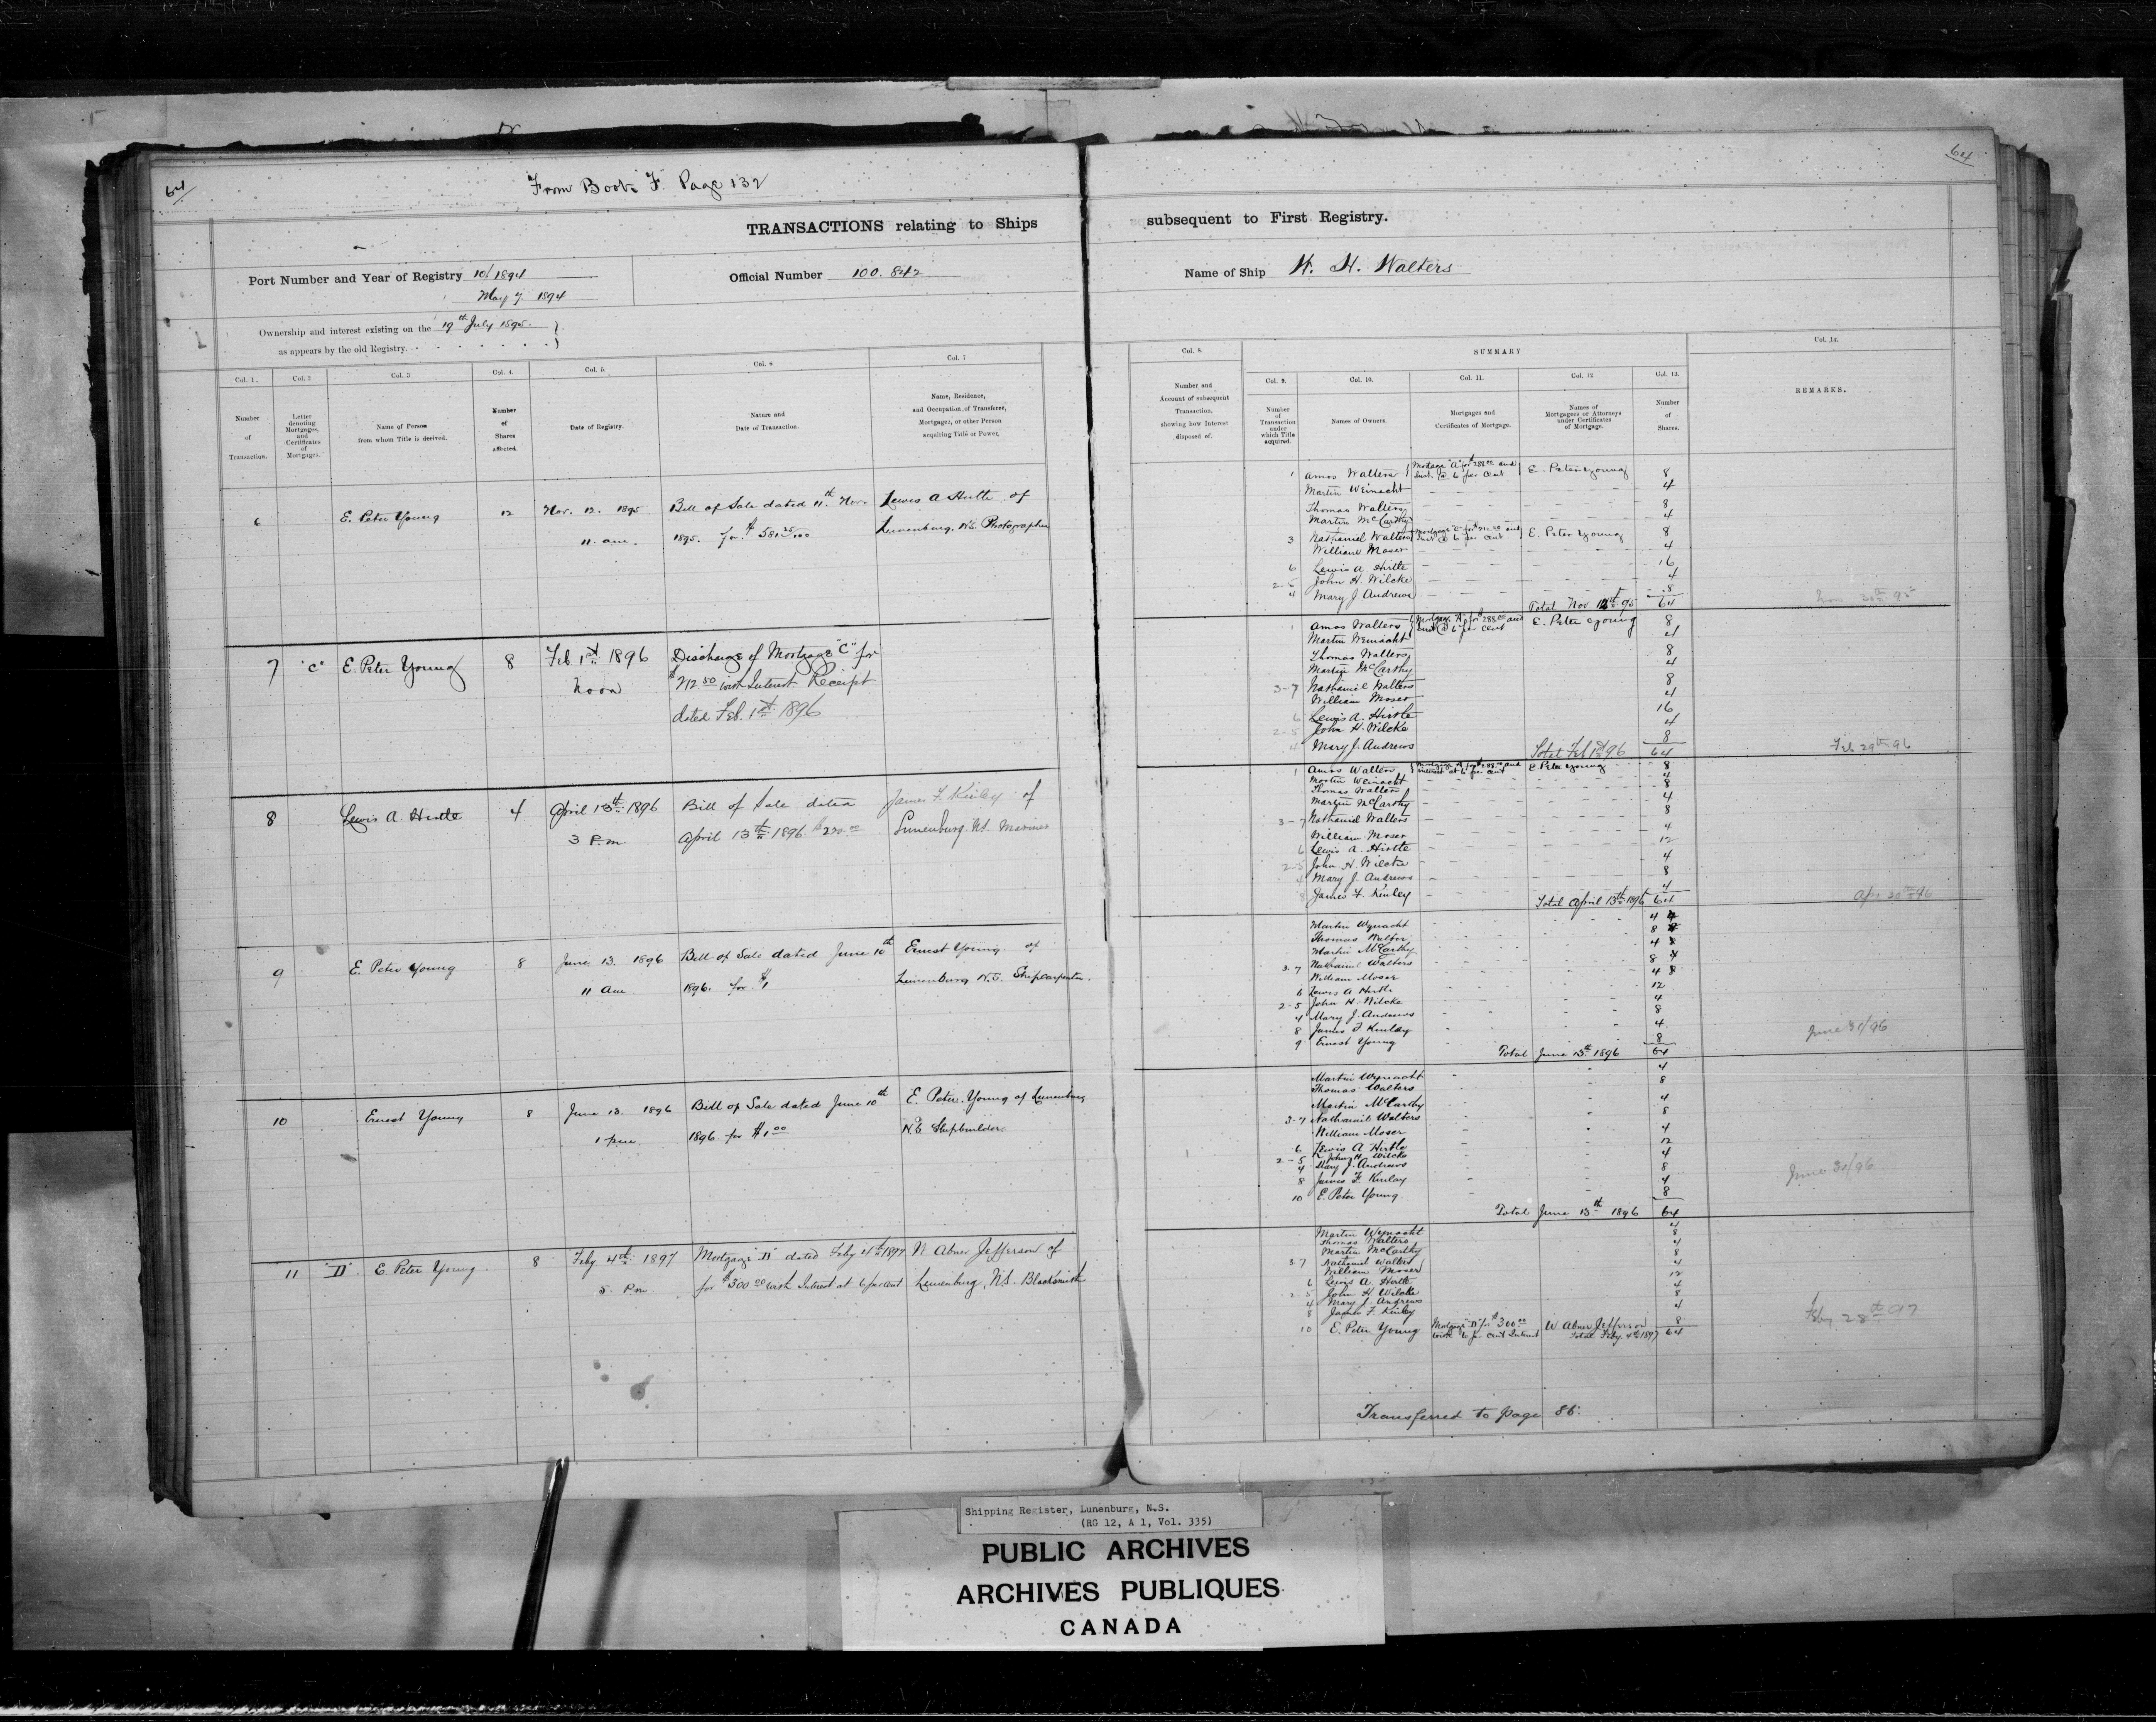 64
From Book "F" Page 132
64
TRANSACTIONS relating to Ships subsequent to First Registry.
Port Number and Year of Registry 10/1894
May 7. 1894
Official Number 100.842
Name of Ship W. H. Walters
Ownership and interest existing on the 19th July 1895.
as appears by the old Registry.
Col. 1.
Number
of
Transaction.
Col. 2
Letter
denoting
Mortgages,
and
Certificates
of
Mortgages.
Col. 3
Name of Person
from whom Title is derived.
Col. 4.
Number
of
Shares
affected.
Col. 5.
Date of Registry.
Col. 6
Nature and
Date of Transaction.
Col. 7
Name, Residence,
and Occupation of Transferee,
Mortgagee, or other Person
acquiring Title or Power.
Col. 8.
Number and
Account of subsequent
Transaction,
showing how Interest
disposed of.
SUMMARY
Col. 9.
Number
of
Transaction
under
which Title
acquired.
Col. 10.
Names of Owners.
Col. 11.
Mortgages and
Certificates of Mortgage.
Col. 12
Names of
Mortgagees or Attorneys
under Certificates
of Mortgage.
Col. 13.
Number
of
Shares.
Col. 14.
REMARKS.
6 E. Peter Young 12 Nov. 12. 1895 Bill of Sale dated 11th Nov. Lewis A Hirtle of
11 am. 1895. for $581 25/100 Lunenburg, N.S. Photographer
1 Amos Walters Mortgage "A" for $288.00 and E. Peter Young 8
Int. @ 6 per cent
Martin Weinacht 4
Thomas Walters 8
Martin McCarthy 4
3 Nathaniel Walters Mortgage "C" for $212.50 and E. Peter Young 8
Int @ 6 per cent
William Moser 4
6 Lewis A. Hirtle 16
2-5 John H. Wilcke 4
4 Mary J Andrews 8
Total Nov 12th 95 64
Nov 30th 95
7 "C" E. Peter Young 8 Feb 1st 1896 Discharge of Mortgage "C" for
Noon $212 50 with Interest Receipt
dated Feb. 1st 1896
1 Amos Walters Mortgage "A" for $288.00 and E. Peter Young 8
Int @ 6 per cent
Martin Weinacht 4
Thomas Walters 8
Martin McCarthy 4
3-7 Nathaniel Walters 8
William Moser 4
6 Lewis A. Hirtle 16
2-5 John H. Wilcke 4
4 Mary J. Andrews 8
Total Feb 1st 96 64
Feb 29th 96
8 Lewis A. Hirtle 4 April 13th 1896 Bill of Sale dated James F. Kinley of
3 P.m. April 13th 1896 Lunenburg. N.S. Mariner
1 Amos Walters Mortgage "A" for $288.00 and E Peter Young 8
interest at 6 per cent
Martin Weinacht 4
Thomas Walters 8
Martin McCarthy 4
3-7 Nathaniel Walters 8
William Moser 4
6 Lewis A. Hirtle 12
2-5 John H. Wilcke 4
4 Mary J. Andrews 8
8 James F. Kinley 4
Total April 13th 1896 64
Apr 30th 96
9 E. Peter Young 8 June 13. 1896 Bill of Sale dated June 10th Ernest Young of
11 am 1896. for $1 Lunenburg N.S. Shipcarpenter.
Martin Wynacht 4
Thomas Walter 8
Martin McCarthy 4
3-7 Nathaniel Walters 8
William Moser 4
6 Lewis A Hirtle 12
2-5 John H. Wilcke 4
4 Mary J. Andrews 8
8 James F Kinley 4
9 Ernest Young 8
Total June 13th 1896 64
June 30/96
10 Ernest Young 8 June 13. 1896 Bill of Sale dated June 10th E. Peter Young of Lunenburg
1 pm. 1896 for $1 00 N.S. Shipbuilder
Martin Wynacht 4
Thomas Walters 8
Martin McCarthy 4
3-7 Nathaniel Walters 8
William Moser 4
6 Lewis A Hirtle 12
2-5 John H. Wilcke 4
4 Mary J. Andrews 8
8 James F. Kinley 4
10 E. Peter Young 8
Total June 13th 1896 64
June 30/96
11 "D" E. Peter Young 8 Feby 4th 1897 Mortgage "D" dated Feby 4th 1897 W Abner Jefferson of
5 Pm for $300 00 with Interest at 6 per cent Lunenburg, N.S. Blacksmith
Martin Wynacht 4
Thomas Walters 8
Martin McCarthy 4
3 7 Nathaniel Walters 8
William Moser 4
6 Lewis A. Hirtle 12
2-5 John H Wilcke 4
4 Mary J. Andrews 8
8 James F. Kinley 4
10 E. Peter Young Mortgage "D" for $300 00 W Abner Jefferson 8
with 6 per cent Interest Total Feby 4th 1897 64
Feby 28th 97
Transferred to page 86.
Shipping Register, Lunenburg, N.S.
(RG 12, A 1, Vol. 335)
PUBLIC ARCHIVES
ARCHIVES PUBLIQUES
CANADA